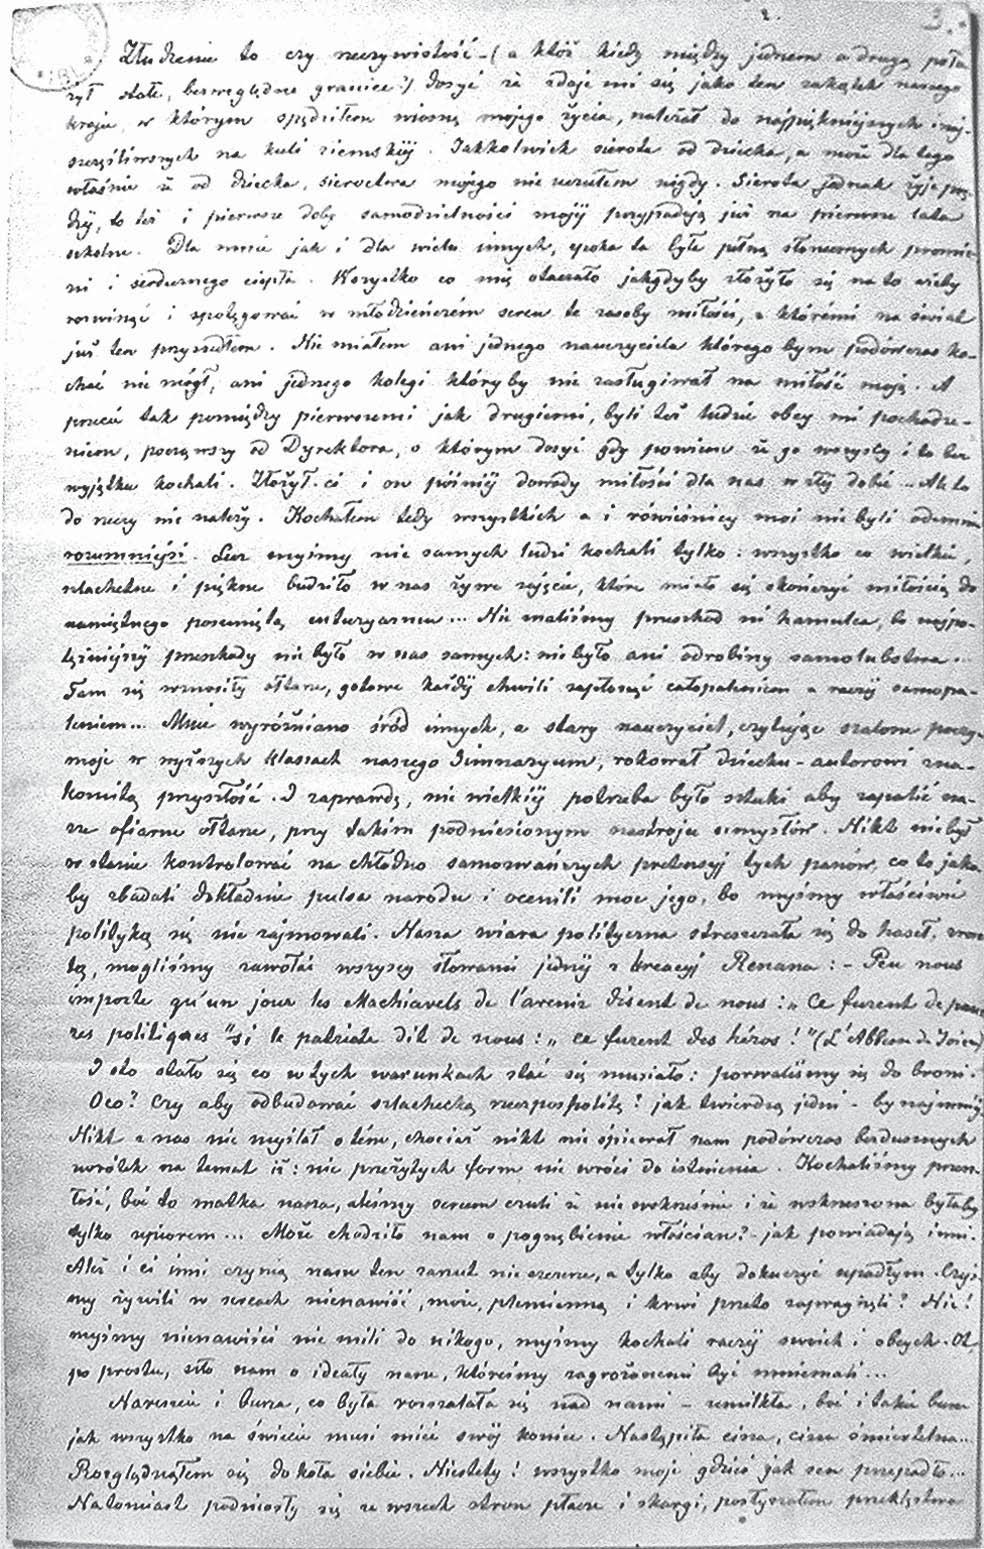 2.
3.
Złudzenie to czy rzeczywistość – (a któż kiedy między jednem a drugą poło-
żył stałe, bezwzględne granice?) dosyć że zdaje mi się jako ten zakątek naszego
kraju, w którym spędziłem wiosnę mojego życia, należał do najpiękniejszych i naj-
szczęśliwszych na kuli ziemskiéj. Jakkolwiek sierota od dziecka, a może dla tego
właśnie że od dziecka, sieroctwa mojego nie uczułem nigdy. Sierota jednak żyje prę-
dzéj, to téż i pierwsze doby samodzielności mojéj przypadają już na pierwsze lata
szkolne. Dla mnie jak i dla wielu innych, epoka ta była pełną słonecznych promie-
ni i serdecznego ciepła. Wszystko co mię otaczało jakgdyby złożyło się na to ażeby
rozwinąć i spotęgować w młodzieńczém sercu te zasoby miłości, z którémi na świat
już ten przyszedłem. Nie miałem ani jednego nauczyciela którego bym podówczas ko-
chać nie mógł, ani jednego kolegi któryby nie zasługiwał na miłość moją. A
przecie tak pomiędzy pierwszemi jak drugiemi, byli téż ludzie obcy mi pochodze-
niem, począwszy od Dyrektora, o którym dosyć gdy powiem że go wszyscy i to bez
wyjątku kochali. Złożył-ci i on późniéj dowody miłości dla nas w złéj dobie... Ale to
do rzeczy nie należy. Kochałem tedy wszystkich a i rówieśnicy moi nie byli odemnie
rozumniejsi. Lecz myśmy nie samych ludzi kochali tylko: wszystko co wielkie,
szlachetne i piękne budziło w nas żywe zajęcie, które miało się skończyć miłością do
namiętnego posuniętą entuzyazmu... Nie znaliśmy przeszkód ni hamulca, bo najpo-
tężniejszéj przeszkody nie było w nas samych: nie było ani odrobiny samolubstwa...
Tam się wznosiły ołtarze, gotowe każdéj chwili zapłonąć całopaleniem a raczéj samopa-
leniem... Mnie wyróżniano śród innych, a stary nauczyciel, czytując szalone poezye
moje w wyższych klassach naszego Gimnazyum, rokował dziecku-autorowi zna-
komitą przyszłość. I zaprawdę, nie wielkiéj potrzeba było sztuki aby zapalić na-
sze ofiarne ołtarze, przy takim podniesionym nastroju umysłów. Nikt nie był
w stanie kontrolować na chłodno samozwańczych pretensyj tych panów, co to jako-
by zbadali dokładnie pulsa narodu i ocenili moc jego, bo myśmy właściwie
polityką się nie zajmowali. Nasza wiara polityczna streszczała się do haseł, zresz-
tą, mogliśmy zawołać wszyscy słowami jednéj z kreacyj Renana: – Peu nous
importe qu'un jour les Machiavels de l'avenir disent de nous: „Ce furent de pauv-
res politiques" si le patriote dit de nous: „ce furent des héros!" (L'Abbesse de Jouarre)
I oto stało się co w tych warunkach stać się musiało: porwaliśmy się do broni.
Oco? Czy aby odbudować szlachecką rzeczpospolitę? jak twierdzą jedni – bynajmniéj.
Nikt z nas nie myślał o tém, chociaż nikt nie śpiewał nam podówczas bezdusznych
zwrótek na temat iż: nie przeżytych form nie wróci do istnienia. Kochaliśmy przesz-
łość, boć to matka nasza, aleśmy sercem czuli że nie wskrześnie i że wskrzeszona byłaby
tylko upiorem... Może chodziło nam o pognębienie włościan? – jak powiadają inni.
Aleć i ci inni czynią nam ten zarzut nieszczerze, a tylko aby dokuczyć upadłym. Czyś-
my żywili w sercach nienawiść, może, plemienną i krwi przeto zapragnęli? Nie!
myśmy nienawiści nie mieli do nikogo, myśmy kochali raczéj swoich i obcych. Ot,
po prostu, szło nam o ideały nasze, któreśmy zagrożonemi być mniemali...
Nareszcie i burza, co była rozszalała się nad nami – umilkła, boć i taka burza
jak wszystko na świecie musi mieć swój koniec. Nastąpiła cisza, cisza śmiertelna...
Rozglądnąłem się dokoła siebie. Niestety! wszystko moje gdzieś jak sen przepadło...
Natomiast podniosły się ze wszech stron płacze i skargi, posłyszałem przekleństwa